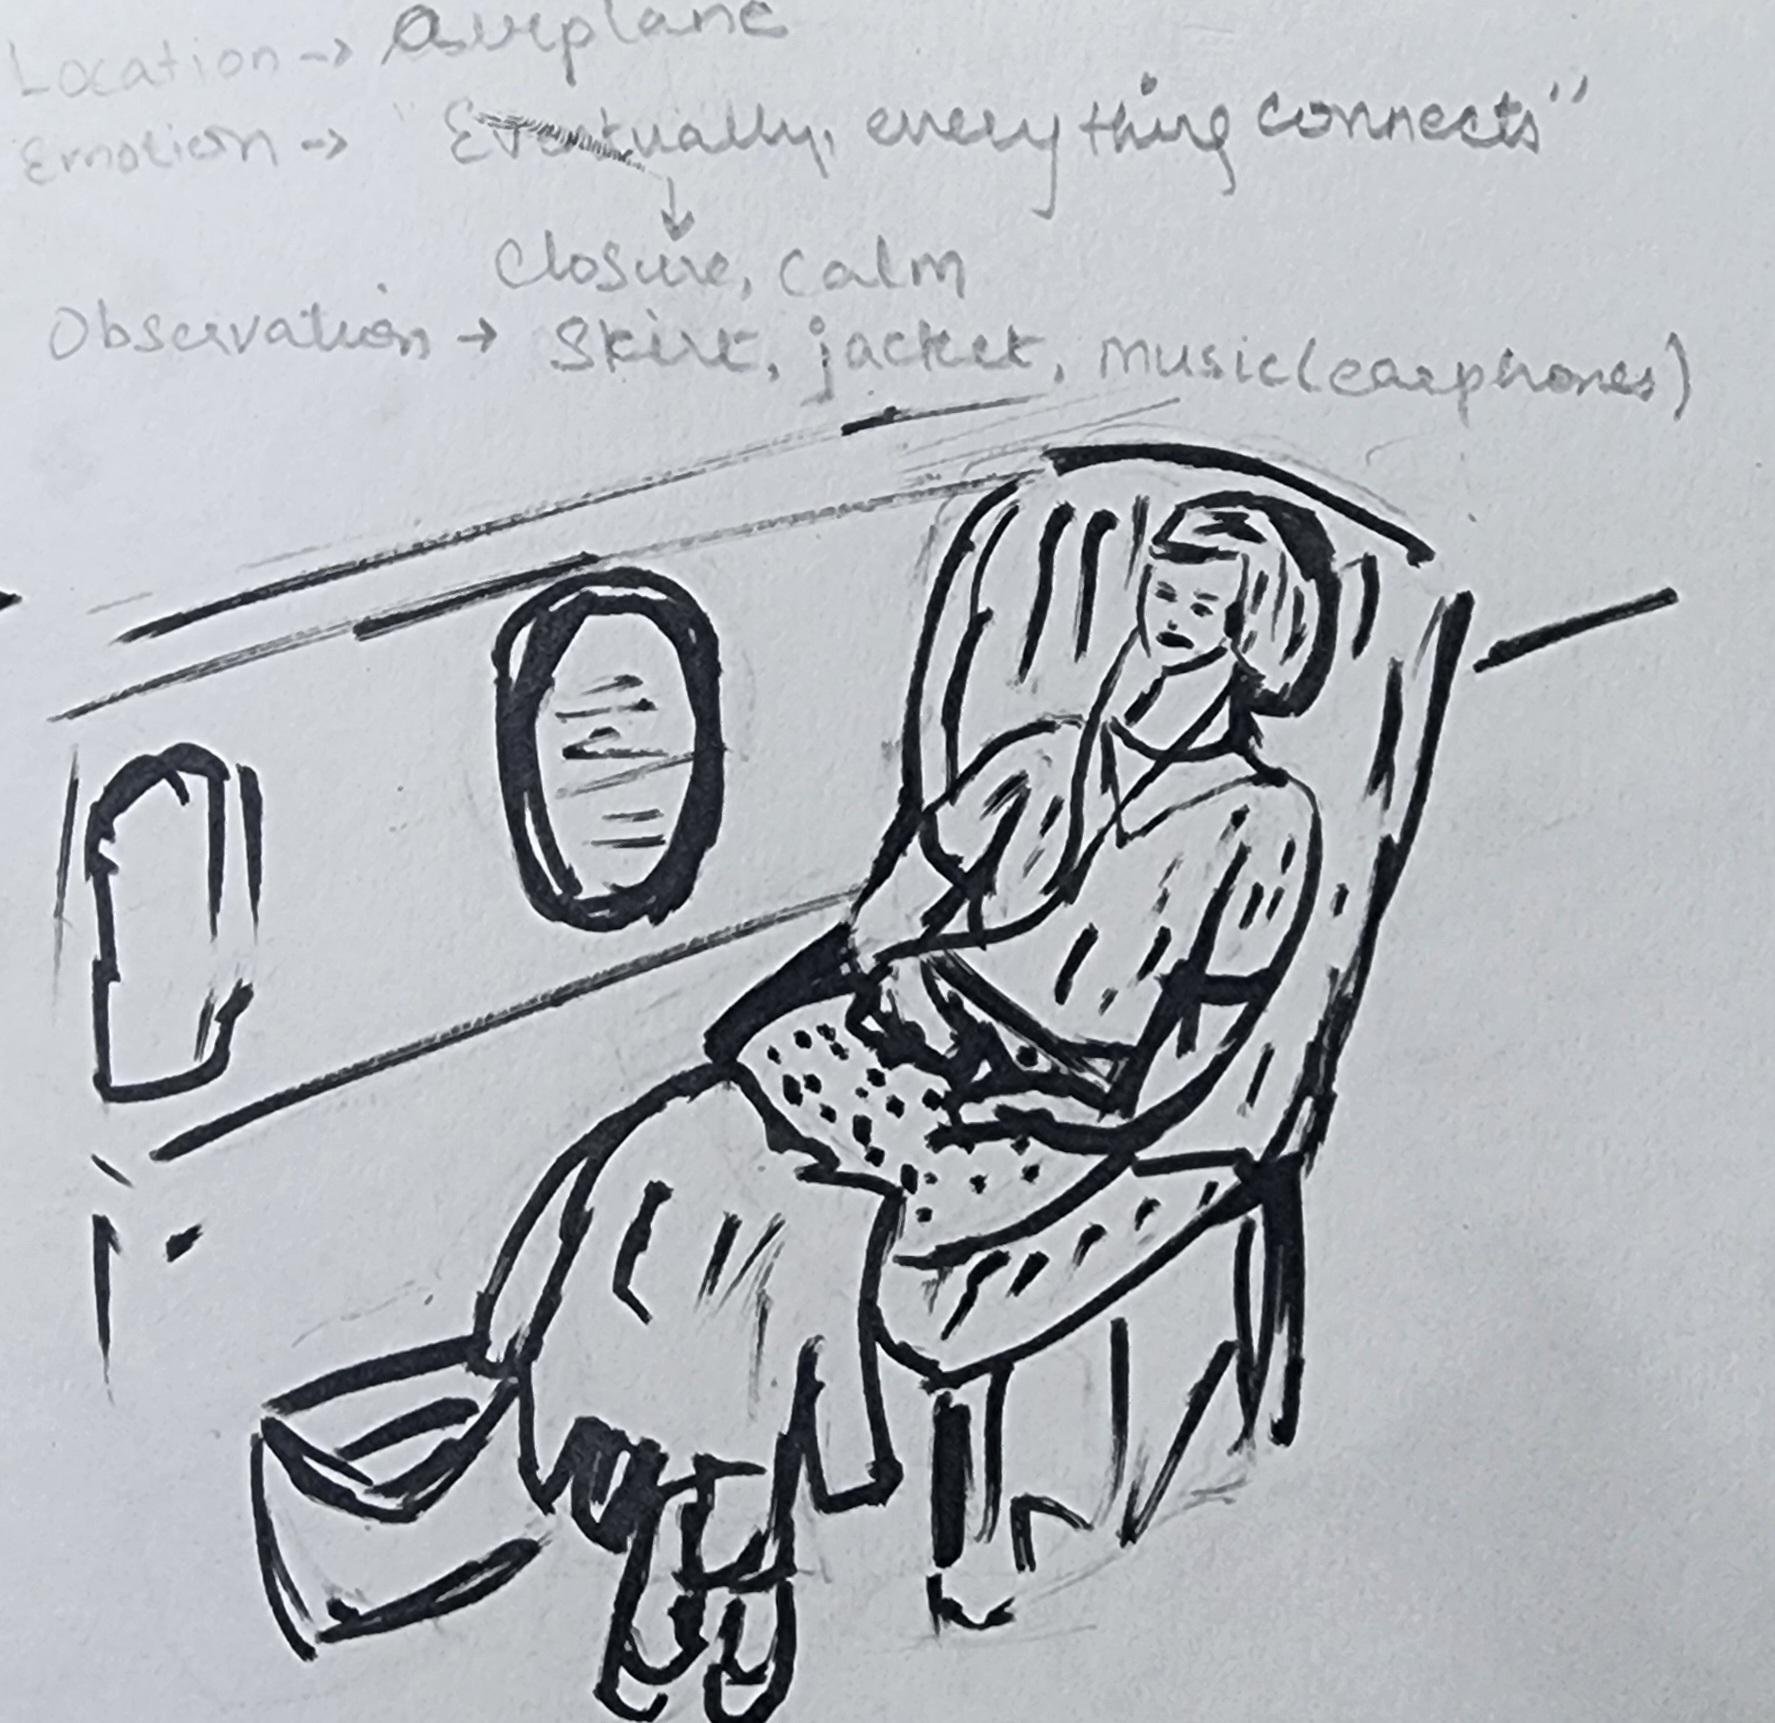 Location → Airplane
Emotion → "Eventually, everything connects"
↓
Closure, calm
Observation → Skirt, jacket, music(earphones)